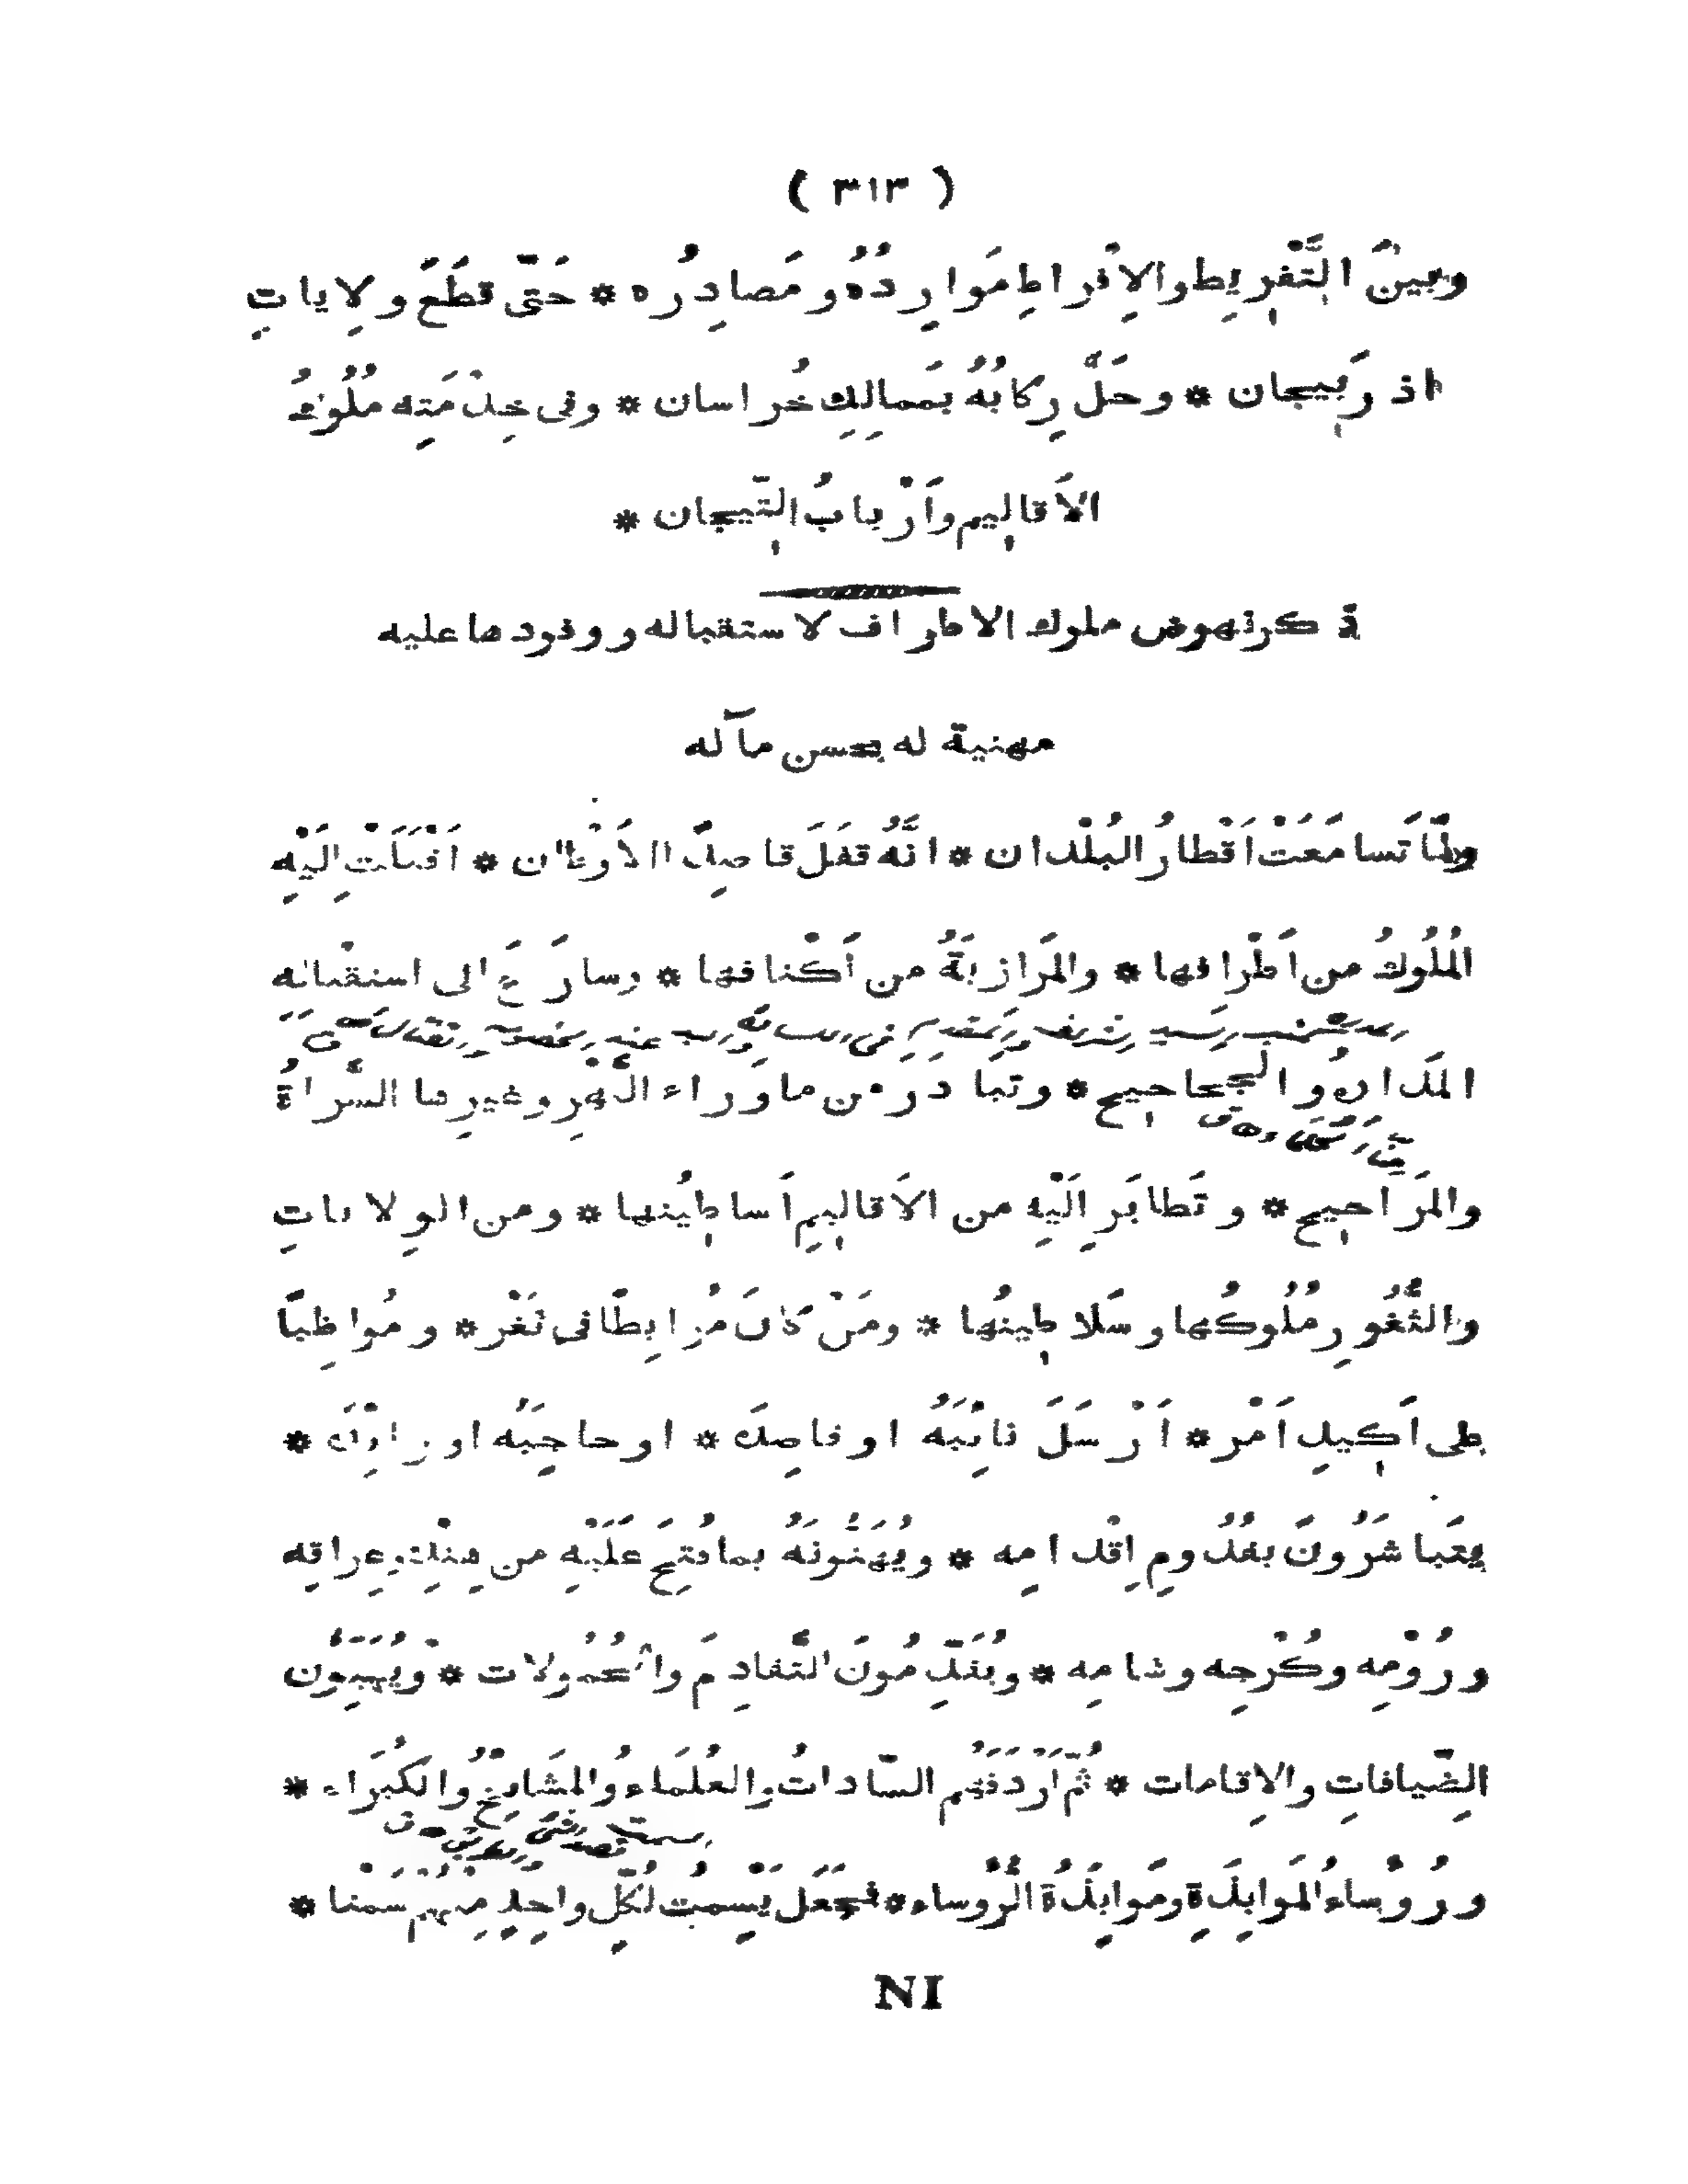 ( ٣١٣ )
وبينَ التَّفْرِيطِ والاِفْراطِ مَوارِدُهُ ومَصادِرُه * حَتّى قَطَعَ ولاِياتِ
اذرَبِيجان * وحَلَّ رِكابُهُ بَممالِكِ خُراسان * وفى خِدْمَتِه مُلُوكُ
الاَقالِيم واَرْبابُ التِّيجان *
ذكر نهوض ملوك الاطراف لاستقباله ووفودها عليه
مهنية له بحسن مآله
ولَمَّا تَسامَعَتْ اَقْطارُ البُلْدان * انَّهُ قَفَلَ قاصِدًا الاَوْطان * اَقْبَلَتْ اِلَيْهِ
المُلُوكُ من اَطْرافها * والمَرازِبَةُ من اَكْنافها * وسارَعَ الى استقْباله
المَدارِهُ والجَحاجِيح * وتبادَرَ من ماوَراء النَّهْرِ وغيرِها السُّراةُ
والمَراجِيح * وتَطايَرَ اِلَيْهِ من الاَقالِيمِ اَساطِينُها * ومن الوِلاياتِ
والثُّغُورِ مُلُوكُها وسَلاطِينُها * ومَنْ كانَ مُرابِطًا فى ثَغْر * ومُواظِبًا
على اَكِيدِ اَمْر * اَرْسَلَ نائِبَهُ او قاصِدَه * او حاجِبَهُ او رائِدَه *
يتَباشَرُونَ بقُدُومِ اِقْدامِه * ويُهَنُّونَهُ بما فُتِحَ عَلَيْهِ من هِنْدِه وعِراقِه
ورُوْمِه وكُرْجِه وشامِه * ويُقَدِّمُونَ التَّقادِمَ والحُمُولات * ويُهَيِّؤُن
الضِّيافاتِ والاِقامات * ثُمَّ اَرْدَفَهُم السّاداتُ والعُلَماءُ والمَشايِخُ والكُبَراء *
ورُؤَساءُ المَوابِذَةِ ومَوابِذَةُ الرُّؤساء * فجَعَلَ يَسْمِتُ لكُلِّ واحِدٍ مِنهم سَمْتا *
NI